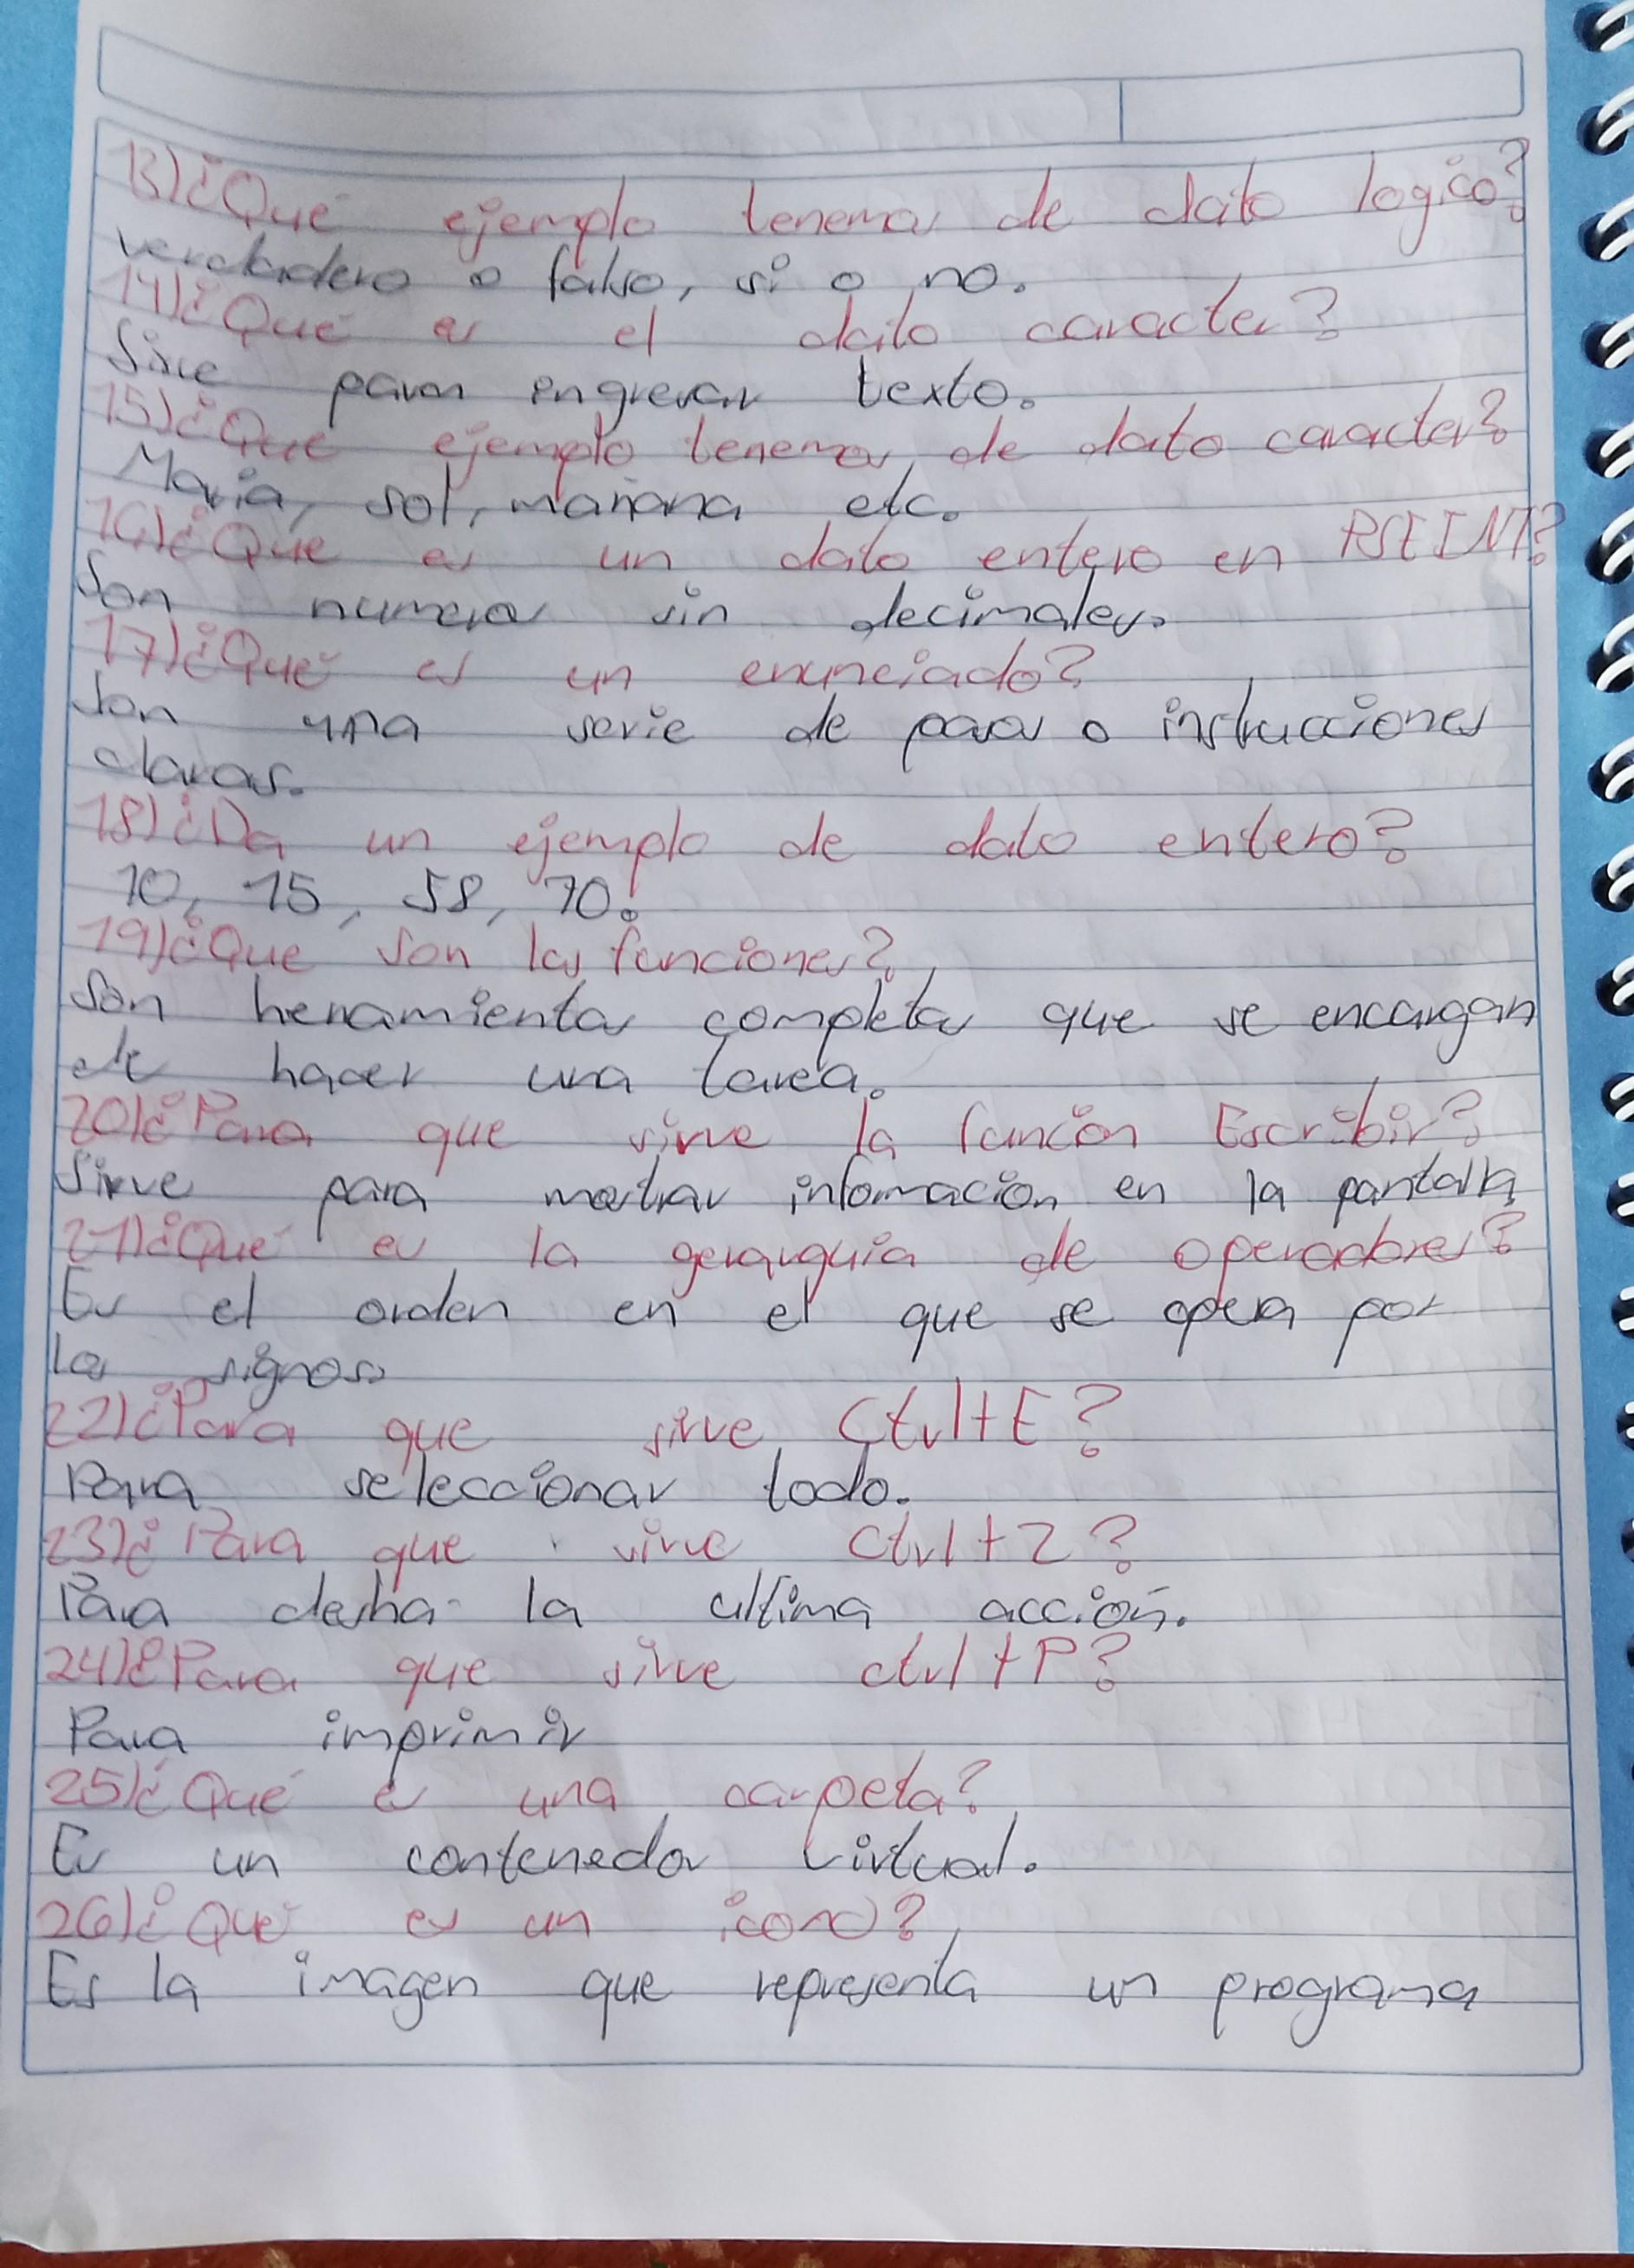 13)¿Qué ejemplo tenemos de dato logico?
verdadero o falso, si o no.
14)¿Qué es el dato caracter?
Sirve para ingresar texto.
15)¿Qué ejemplo tenemos de dato caracter?
Maria, sol, mañana etc.
16)¿Que es un dato entero en PSEINT?
Son numeros sin decimales.
17)¿Qué es un enunciado?
Son una serie de pasos o instrucciones
claras.
18)¿Da un ejemplo de dato entero?
10, 15, 58, 70.
19)¿Que son las funciones?
Son herramientas completas que se encargan
de hacer una tarea.
20)¿Para que sirve la función Escribir?
Sirve para mostrar información en la pantalla
21)¿Qué es la gerarquia de operadores?
Es el orden en el que se opera por
los signos.
22)¿Para que sirve Ctrl+E?
Para seleccionar todo.
23)¿Para que sirve Ctrl+Z?
Para desha la ultima acción.
24)¿Para que sirve ctrl+P?
Para imprimir
25)¿Qué es una carpeta?
Es un contenedor virtual.
26)¿Qué es un icono?
Es la imagen que representa un programa